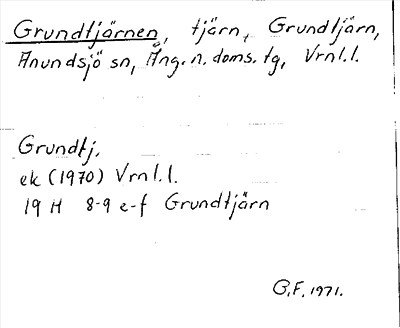 Grundtjärnen, tjärn, Grundtjärn,
Anundsjö sn, Ång. n. doms. tg, Vrnl.l.
Grundtj.
ek (1970) Vrnl.l.
19 H 8-9 e-f Grundtjärn
G.F. 1971.